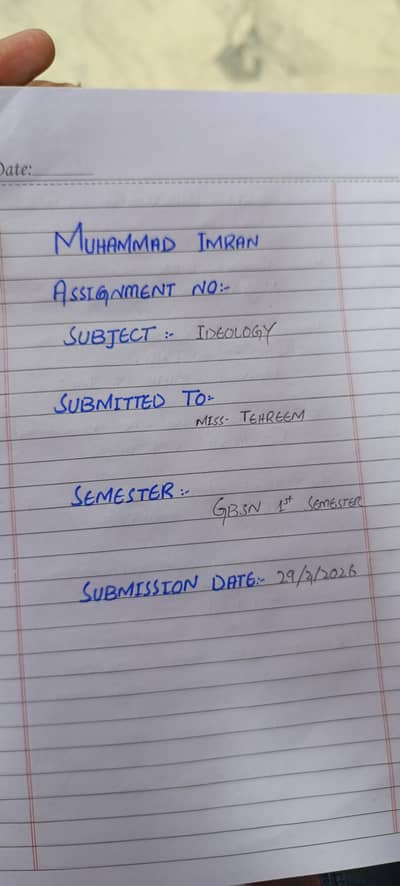 Date:
MUHAMMAD IMRAN
ASSIGNMENT NO:-
SUBJECT :- IDEOLOGY
SUBMITTED TO:-
MISS- TEHREEM
SEMESTER :-
GBSN 1st SEMESTER
SUBMISSION DATE:- 29/2/2026